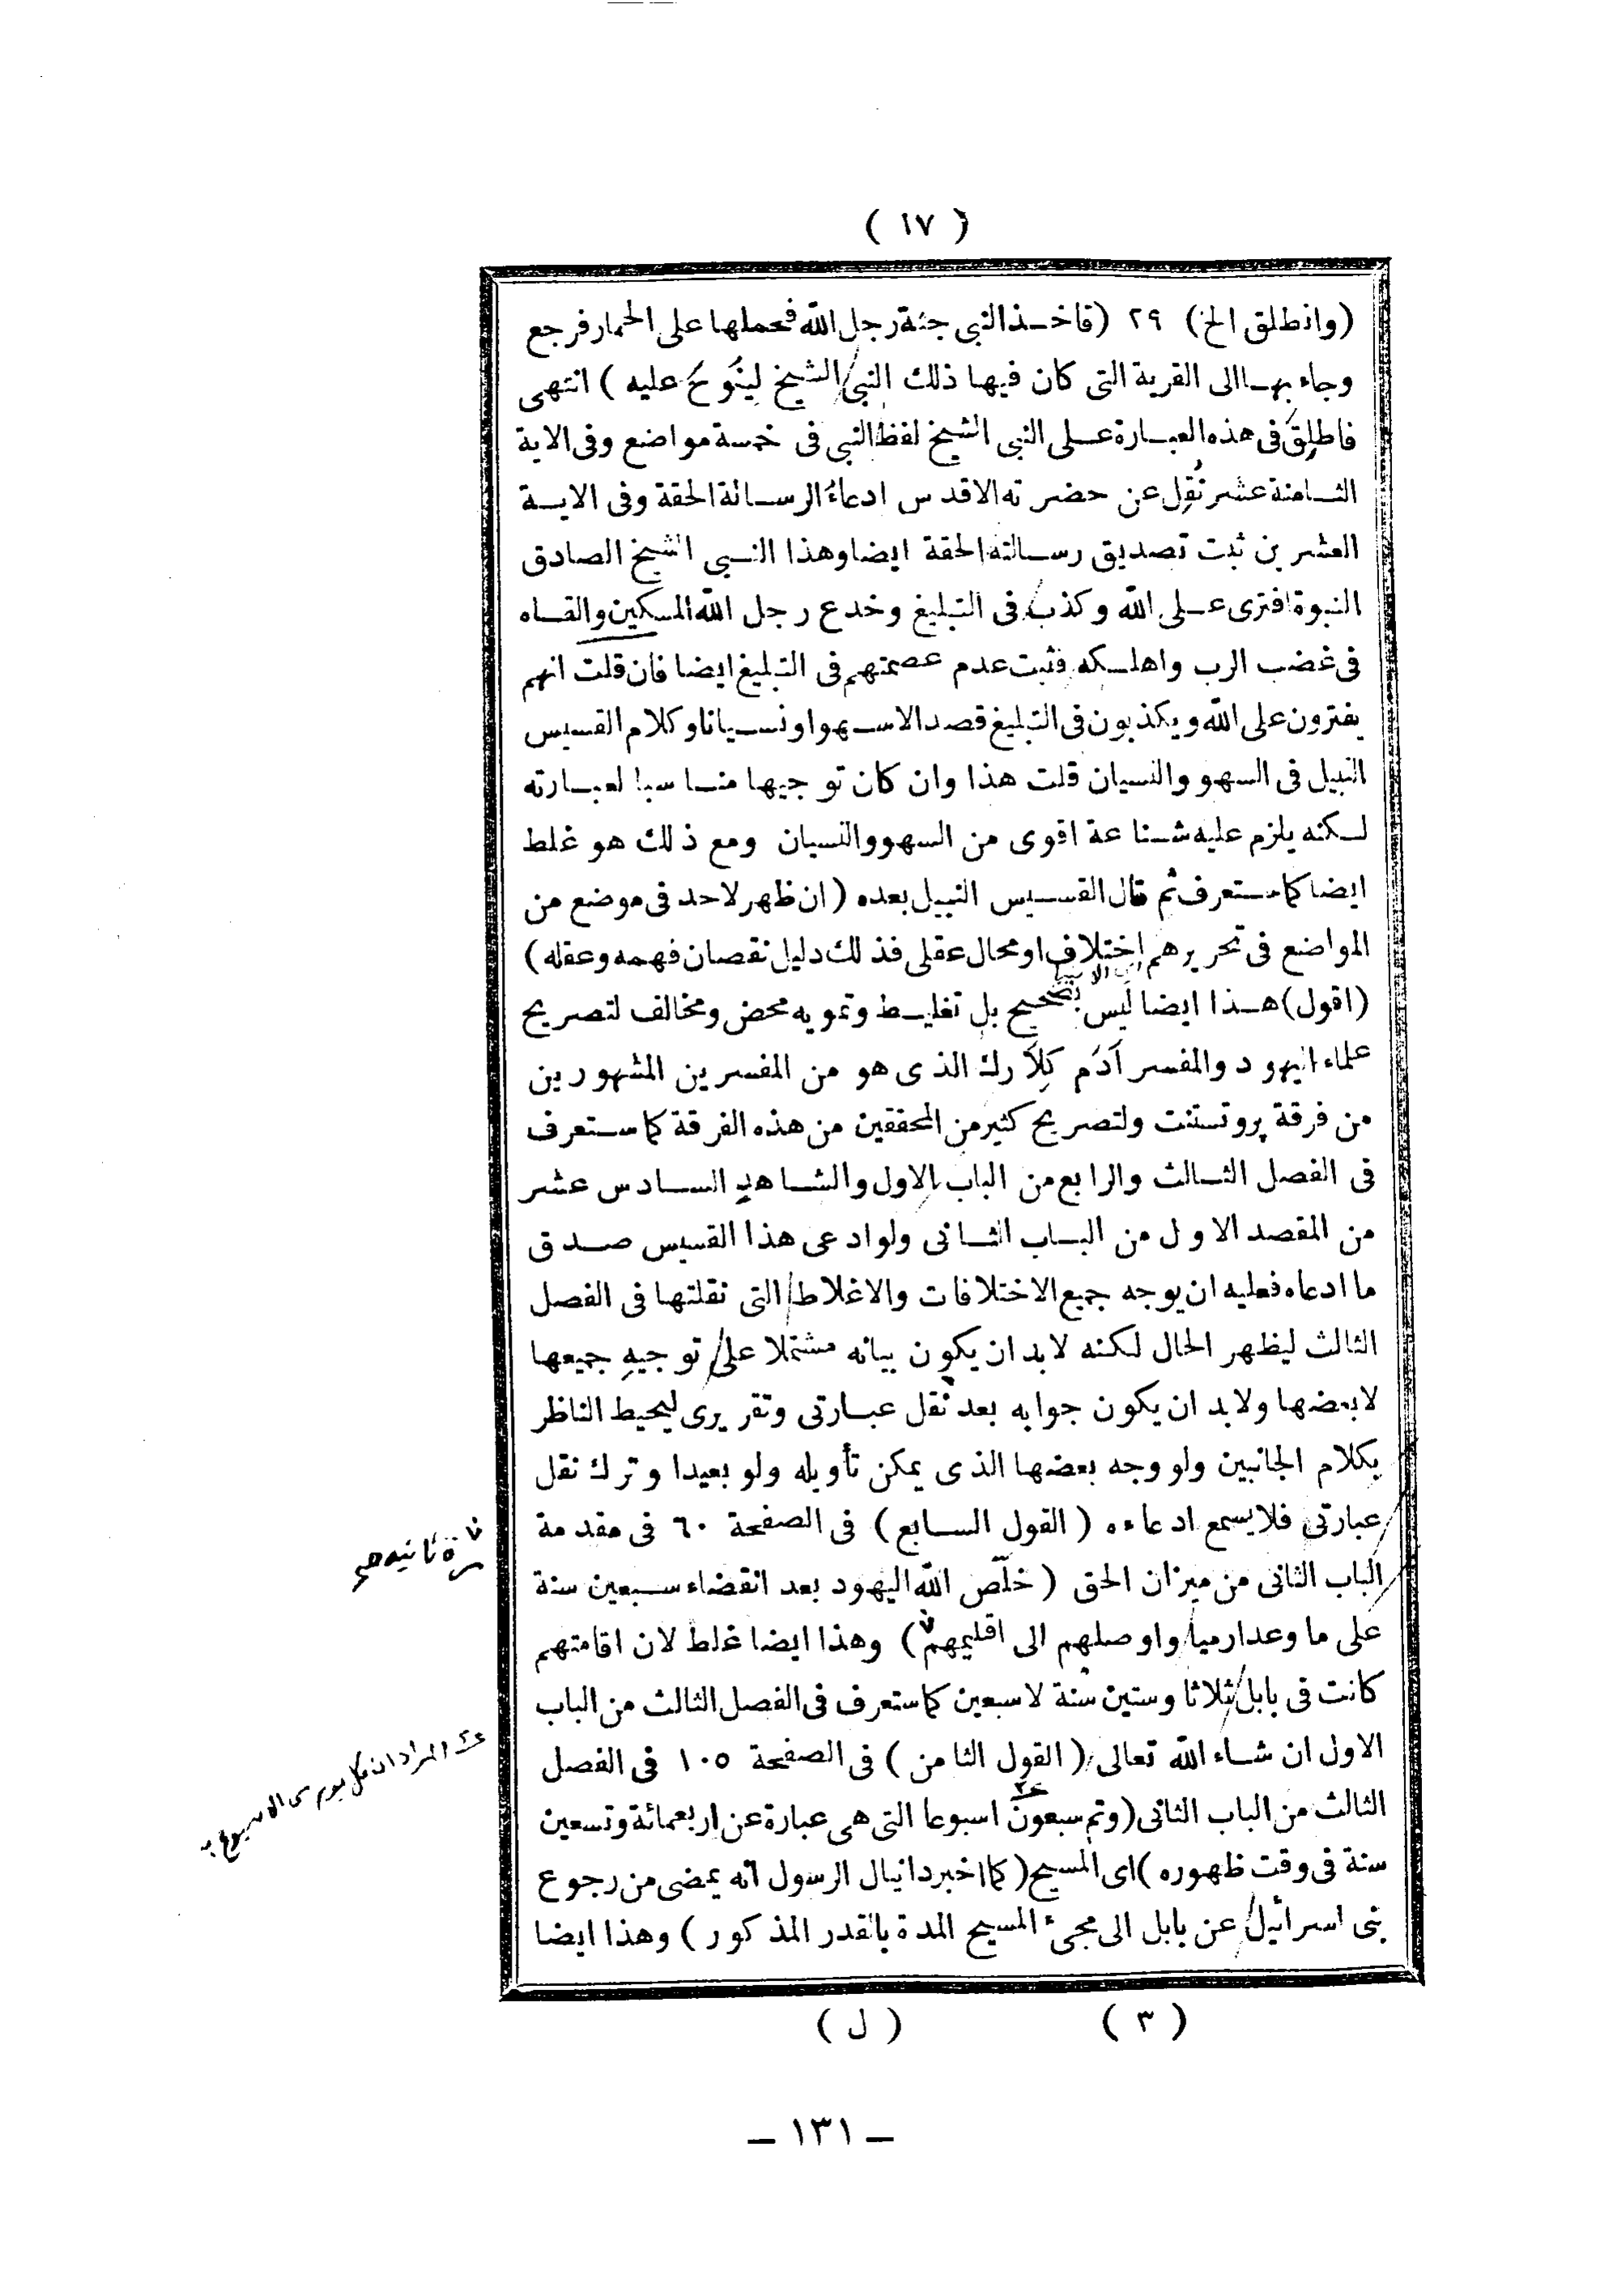 ( ١٧ )
(وانطلق الخ) ٢٩ (فاخذ النبى جثة رجل الله فحملها على الحمار فرجع
وجاء بها الى القرية التى كان فيها ذلك النبى الشيخ لِيَنُوحَ عليه ) انتهى
فاطلِقَ فى هذه العبارة على النبى الشيخ لفظ النبى فى خمسة مواضع وفى الاية
الثامنة عشر نُقِل عن حضرته الاقدس ادعاءُ الرسالة الحقة وفى الاية
العشرين ثبت تصديق رسالته الحقة ايضا وهذا النبى الشيخ الصادق
النبوة افترى على الله وكذب فى التبليغ وخدع رجل الله المسكين والقاه
فى غضب الرب واهلكه فثبت عدم عصمتهم فى التبليغ ايضا فان قلت انهم
يفترون على الله ويكذبون فى التبليغ قصدا لاسهوا ونسيانا وكلام القسيس
النبيل فى السهو والنسيان قلت هذا وان كان توجيها مناسبا لعبارته
لكنه يلزم عليه شناعة اقوى من السهو والنسيان ومع ذلك هو غلط
ايضا كما ستعرف ثم قال القسيس النبيل بعده ( ان ظهر لاحد فى موضع من
المواضع فى تحريرهم اختلاف او محال عقلى فذلك دليل نقصان فهمه وعقله )
(اقول) هذا ايضا ليس بصحيح بل تغليط وتمويه محض ومخالف لتصريح
علماء اليهود والمفسر آدَم كِلاَرك الذى هو من المفسرين المشهورين
من فرقة پروتستنت ولتصريح كثير من المحققين من هذه الفرقة كما ستعرف
فى الفصل الثالث والرابع من الباب الاول والشاهد السادس عشر
من المقصد الاول من الباب الثانى ولو ادعى هذا القسيس صدق
ما ادعاه فعليه ان يوجه جميع الاختلافات والاغلاط التى نقلتها فى الفصل
الثالث ليظهر الحال لكنه لابد ان يكون بيانه مشتملا على توجيهِ جميعها
لابعضها ولابد ان يكون جوابه بعد نقل عبارتى وتقريرى ليحيط الناظر
بكلام الجانبين ولو وجه بعضها الذى يمكن تأويله ولو بعيدا وترك نقل
عبارتى فلا يسمع ادعاءه ( القول السابع ) فى الصفحة ٦٠ فى مقدمة
الباب الثانى من ميزان الحق ( خلّص الله اليهود بعد انقضاء سبعين سنة
على ما وعد ارميا واوصلهم الى اقليمهم ٧) وهذا ايضا غلط لان اقامتهم
كانت فى بابل ثلاثا وستين سنة لا سبعين كما ستعرف فى الفصل الثالث من الباب
الاول ان شاء الله تعالى ( القول الثامن ) فى الصفحة ١٠٥ فى الفصل
الثالث من الباب الثانى (وتم سبعون اسبوعا التى هى عبارة عن اربعمائة وتسعين
سنة فى وقت ظهوره ) اى المسيح ( كما اخبر دانيال الرسول انه يمضى من رجوع
بنى اسرائيل عن بابل الى مجىء المسيح المدة بالقدر المذكور ) وهذا ايضا
٧ مرة ثانية
المراد ان كل يوم من الاسبوع
( ٣ ) ( ل )
— ١٣١ —